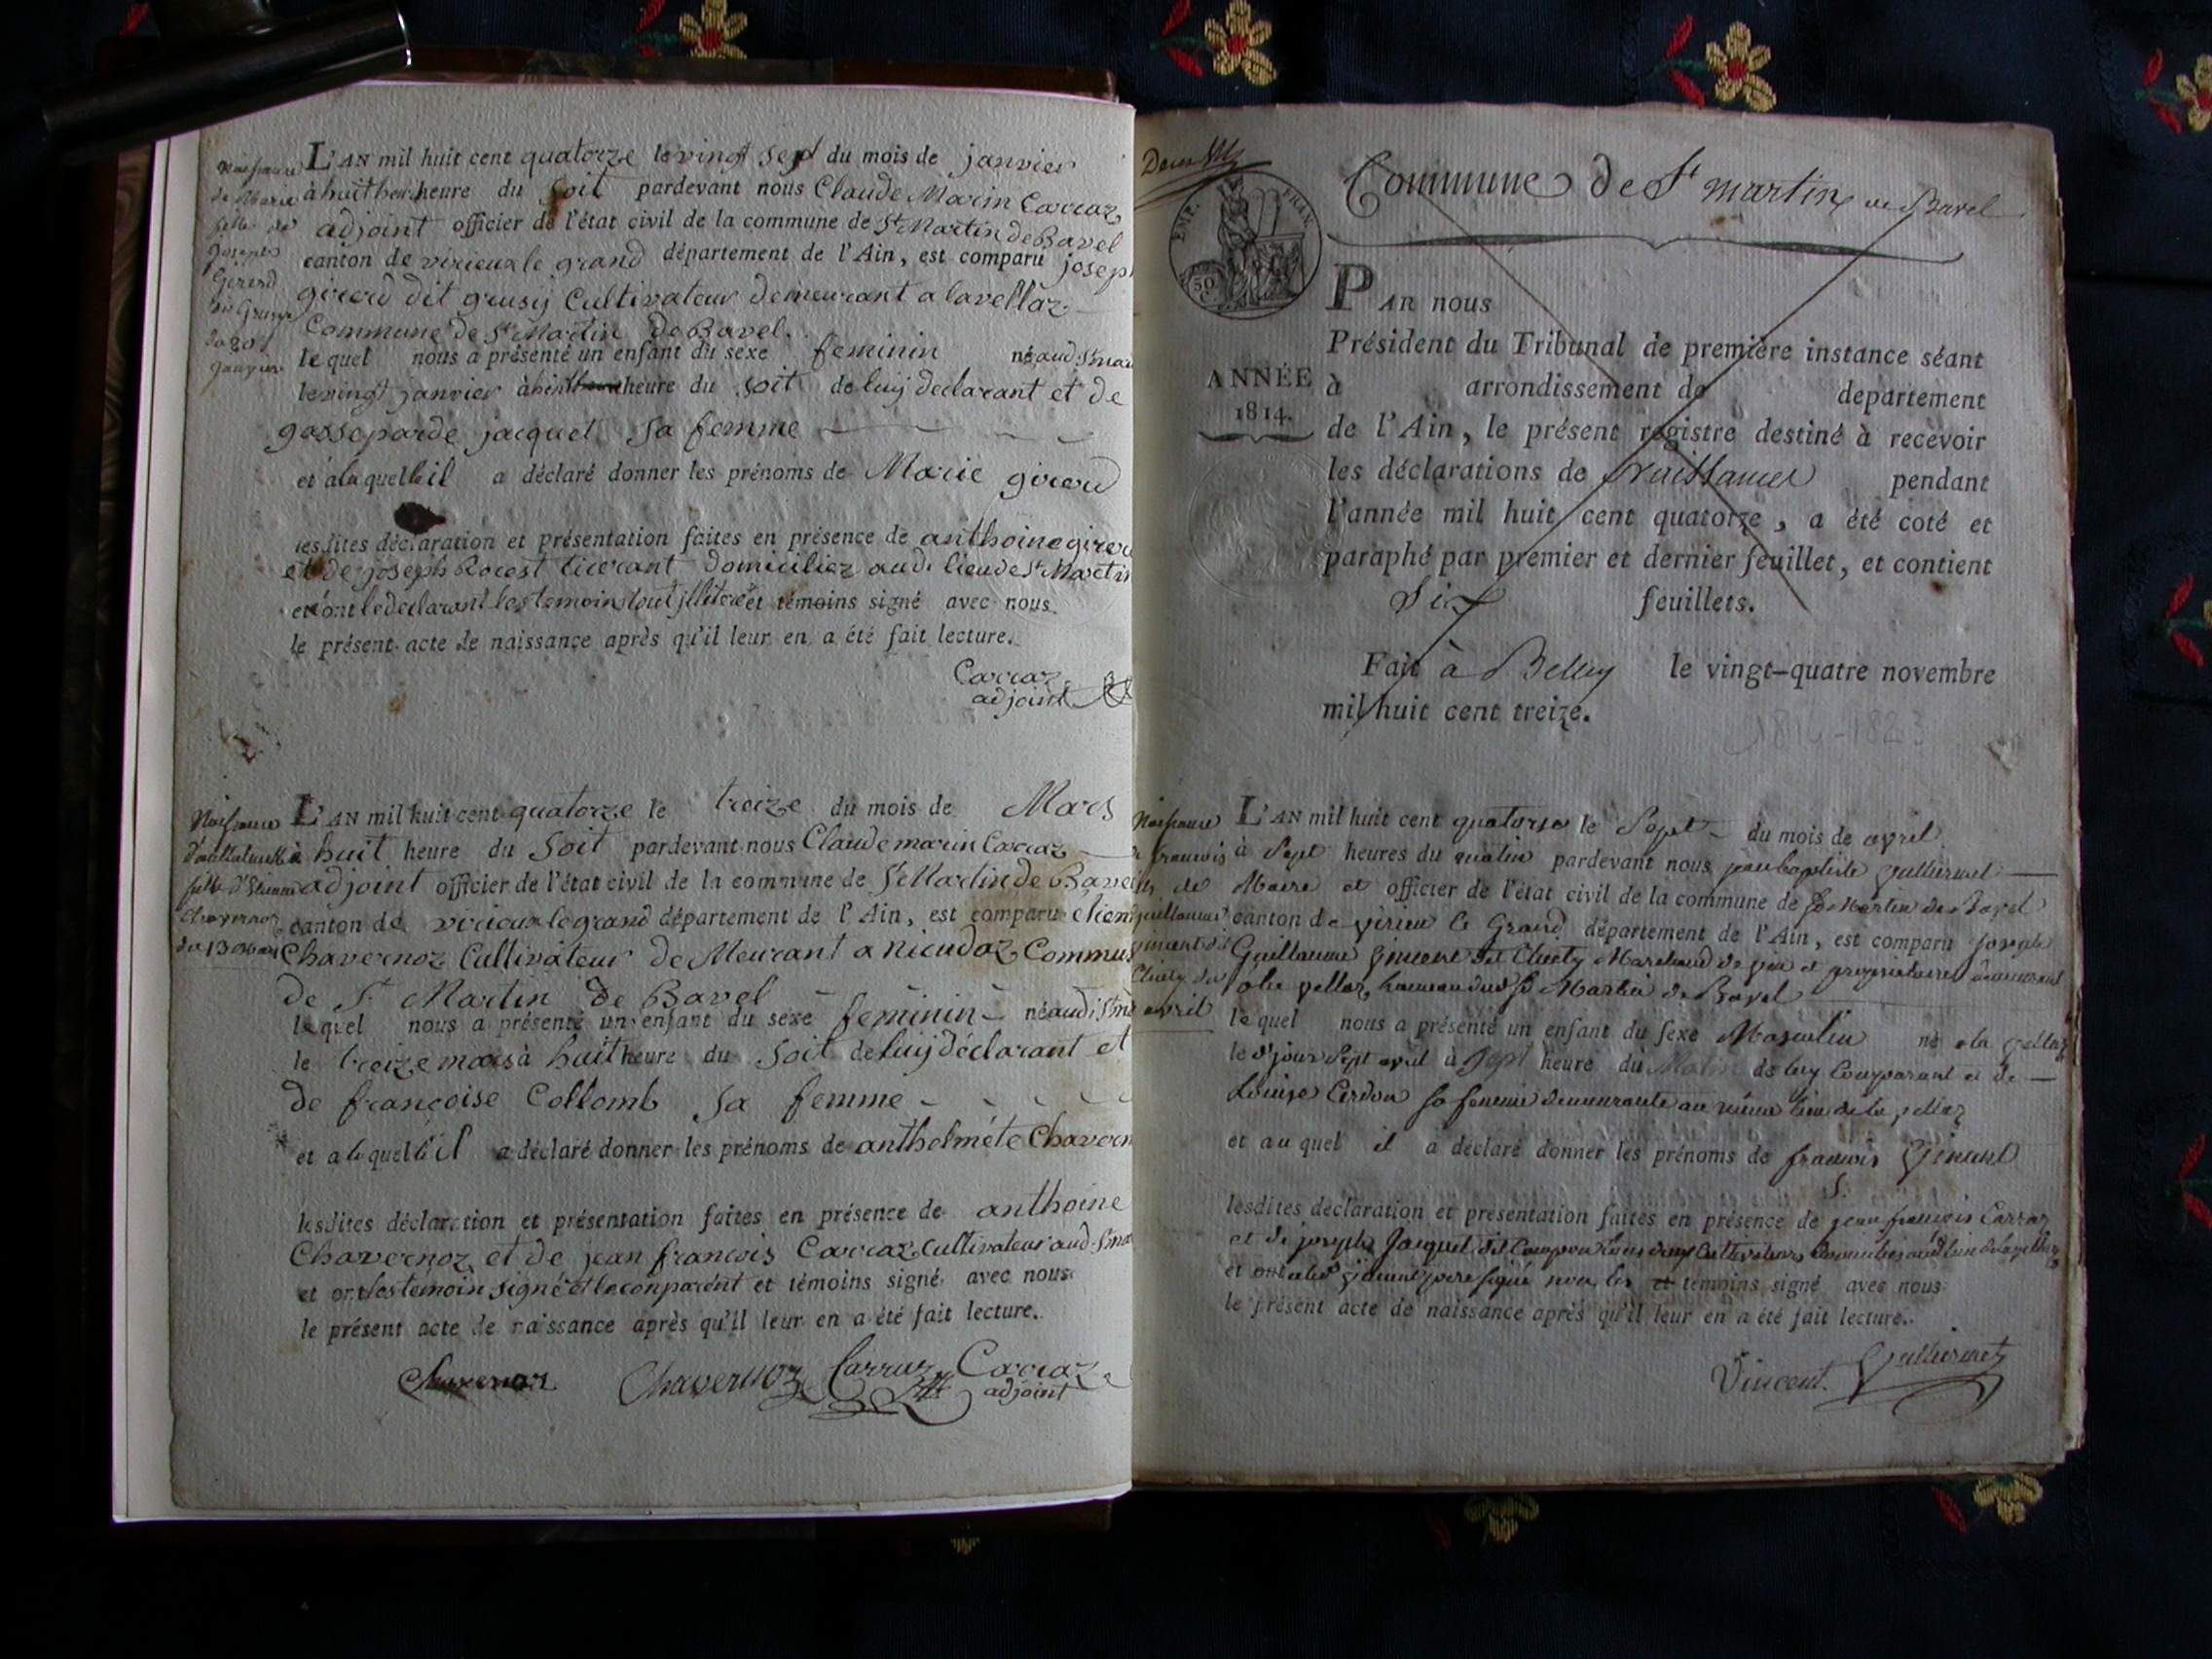 Naissance
de Marie
fille de
Joseph
Girerd
dit Grusy
du 20
janvier
L'AN mil huit cent quatorze le vingt sept du mois de janvier
à huit heure du Soit pardevant nous Claude Marin Carraz
adjoint officier de l'état civil de la commune de St Martin de Bavel
canton de virieux le grand département de l'Ain, est comparu joseph
girerd dit grusij Cultivateur demeurant a lavellaz
Commune de St Martin de Bavel.
lequel nous a présenté un enfant du sexe feminin né aud. St mar
le vingt janvier à huit heure du soit de luij declarant et de
gasseparde jacquet sa femme
et à la quelle il a déclaré donner les prénoms de Marie girerd
lesdites déclaration et présentation faites en présence de anthoine girerd
et de joseph domiciliez audi lieu de St Martin
et ont le declarant les temoins tout jlliteré et témoins signé avec nous
le présent acte de naissance après qu'il leur en a été fait lecture.
Carraz
adjoint
Naissance
d'anthelmette
fille d'Etienne
Chavernoz
du 13 mars
L'AN mil huit cent quatorze le treize du mois de Mars
à huit heure du Soit pardevant nous Claude marin Carraz
adjoint officier de l'état civil de la commune de St Martin de Bavel
canton de virieux le grand département de l'Ain, est comparu etien
Chavernoz Cultivateur de Meurant a nieudaz Commune
de St Martin de Bavel
lequel nous a présenté un enfant du sexe feminin né audi St m
le treize mars à huit heure du Soit de luij déclarant et
de françoise Collomb sa femme
et a la quelle il a déclaré donner les prénoms de anthelméte Chavern
lesdites déclaration et présentation faites en présence de anthoine
Chavernoz et de jean francois Carraz cultivateur aud. St ma
et ont les temoin signé et le conparent et témoins signé avec nous
le présent acte de naissance après qu'il leur en a été fait lecture.
Chavernoz Chavernoz Carraz Carraz
adjoint
Commune de St martin de Bavel
EMP. FRAN.
50 C.
ANNÉE
1814.
PAR nous
Président du Tribunal de première instance séant
à arrondissement de departement
de l'Ain, le présent registre destiné à recevoir
les déclarations de Naissances pendant
l'année mil huit cent quatorze, a été coté et
paraphé par premier et dernier feuillet, et contient
Six feuillets.
Fait à Belley le vingt-quatre novembre
mil huit cent treize.
1814-1823
Naissance
de francois
fils de
guillaume
ginent dit
Cluty du
avril
L'AN mil huit cent quatorse le Sept du mois de avril
à Sept heures du matin pardevant nous jean baptiste
Maire et officier de l'état civil de la commune de St Martin de Bavel
canton de virieu le Grand département de l'Ain, est comparu joseph
Guillaume dit Marchand de et proprietaire demeurant
a la vellaz hameau dud St Martin de Bavel
lequel nous a présenté un enfant du sexe Masculin né a la vellaz
le jour Sept avril à Sept heure du Matin de luy Comparant et de
Louise Cardon sa femme demeurante au même lieu de la vellaz
et au quel il a déclaré donner les prénoms de francois
lesdites déclaration et présentation faites en présence de jean françois Carraz
et de joseph Jacquet dit tous deux Cultivateurs domiciliés aud lieu de la vellaz
et ont pere signé non les et témoins signé avec nous
le présent acte de naissance après qu'il leur en a été fait lecture.
Vincent.